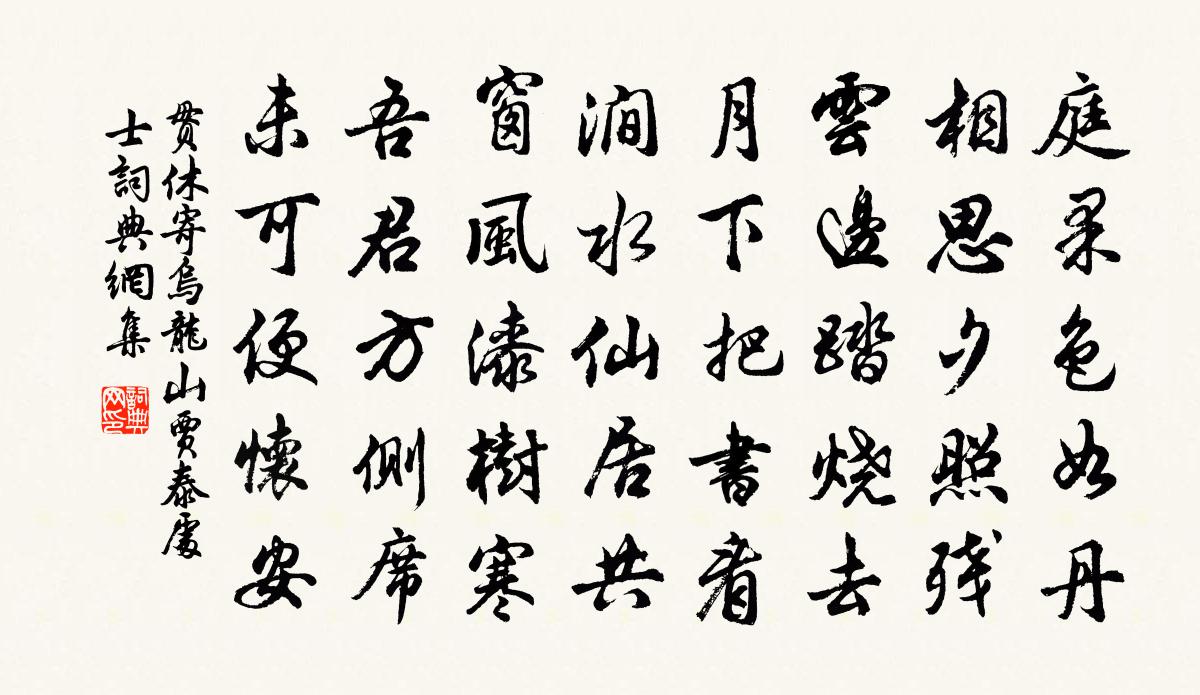 庭果色如丹
相思夕照残
雲邊踏烧去
月下把書看
澗水仙居共
窗風漆樹寒
吾君方側席
未可便懷安
貫休寄烏龍山賈泰處
士詞典網集
詞典
网印